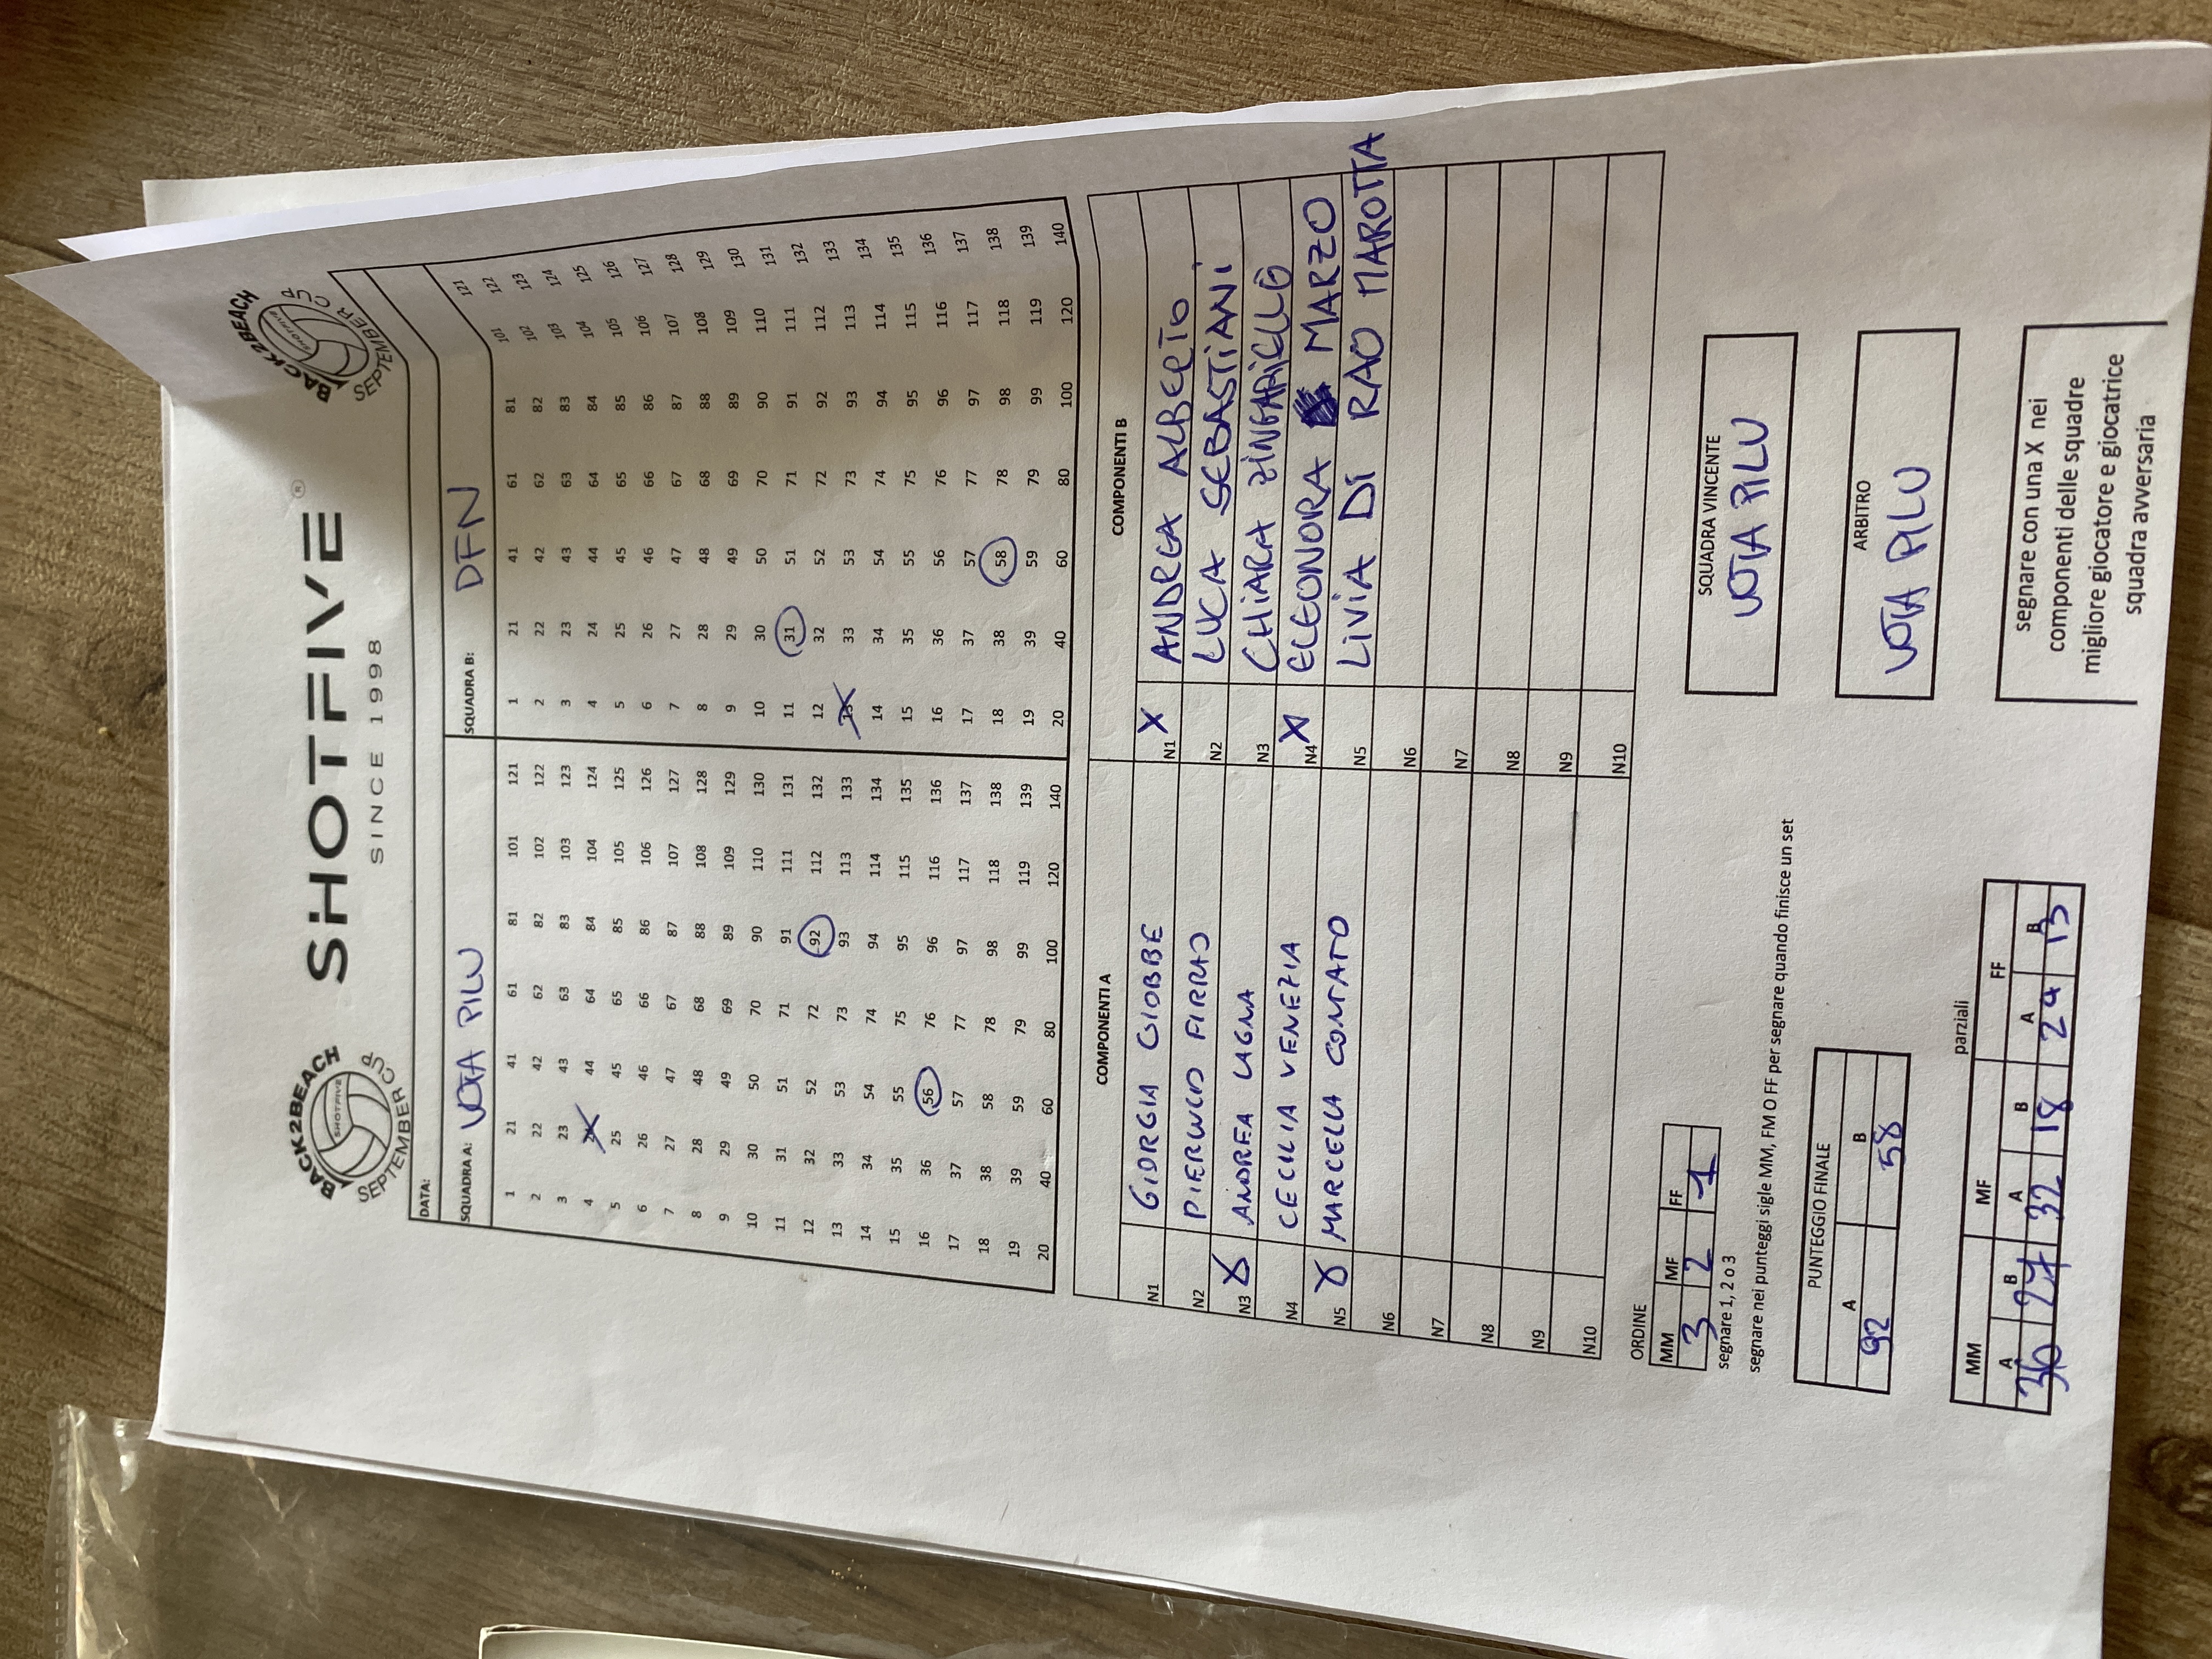 BACK2BEACH
SHOTFIVE
SEPTEMBER CUP
SHOTFIVE®
SINCE 1998
BACK2BEACH
SHOTFIVE
SEPTEMBER CUP
DATA:
SQUADRA A: VOTA PILU SQUADRA B: DFN
1 21 41 61 81 101 121 1 21 41 61 81 101 121
2 22 42 62 82 102 122 2 22 42 62 82 102 122
3 23 43 63 83 103 123 3 23 43 63 83 103 123
4 24 44 64 84 104 124 4 24 44 64 84 104 124
5 25 45 65 85 105 125 5 25 45 65 85 105 125
6 26 46 66 86 106 126 6 26 46 66 86 106 126
7 27 47 67 87 107 127 7 27 47 67 87 107 127
8 28 48 68 88 108 128 8 28 48 68 88 108 128
9 29 49 69 89 109 129 9 29 49 69 89 109 129
10 30 50 70 90 110 130 10 30 50 70 90 110 130
11 31 51 71 91 111 131 11 31 51 71 91 111 131
12 32 52 72 92 112 132 12 32 52 72 92 112 132
13 33 53 73 93 113 133 13 33 53 73 93 113 133
14 34 54 74 94 114 134 14 34 54 74 94 114 134
15 35 55 75 95 115 135 15 35 55 75 95 115 135
16 36 56 76 96 116 136 16 36 56 76 96 116 136
17 37 57 77 97 117 137 17 37 57 77 97 117 137
18 38 58 78 98 118 138 18 38 58 78 98 118 138
19 39 59 79 99 119 139 19 39 59 79 99 119 139
20 40 60 80 100 120 140 20 40 60 80 100 120 140
COMPONENTI A COMPONENTI B
N1 GIORGIA GIOBBE N1 X ANDREA ALBERTO
N2 PIERLUCIO FIRRAO N2 LUCA SEBASTIANI
N3 X ANDREA LAGNA N3 CHIARA ZINGARIELLO
N4 CECILIA VENEZIA N4 X ELEONORA MARZO
N5 X MARCELLA CONTATO N5 LIVIA DI RAO MAROTTA
N6 N6
N7 N7
N8 N8
N9 N9
N10 N10
ORDINE
MM MF FF
3 2 1
segnare 1, 2 o 3
segnare nei punteggi sigle MM, FM O FF per segnare quando finisce un set
SQUADRA VINCENTE
VOTA PILU
PUNTEGGIO FINALE
A B
92 58
ARBITRO
VOTA PILU
parziali
MM MF FF
A B A B A B
36 27 32 18 24 13
segnare con una X nei
componenti delle squadre
migliore giocatore e giocatrice
squadra avversaria